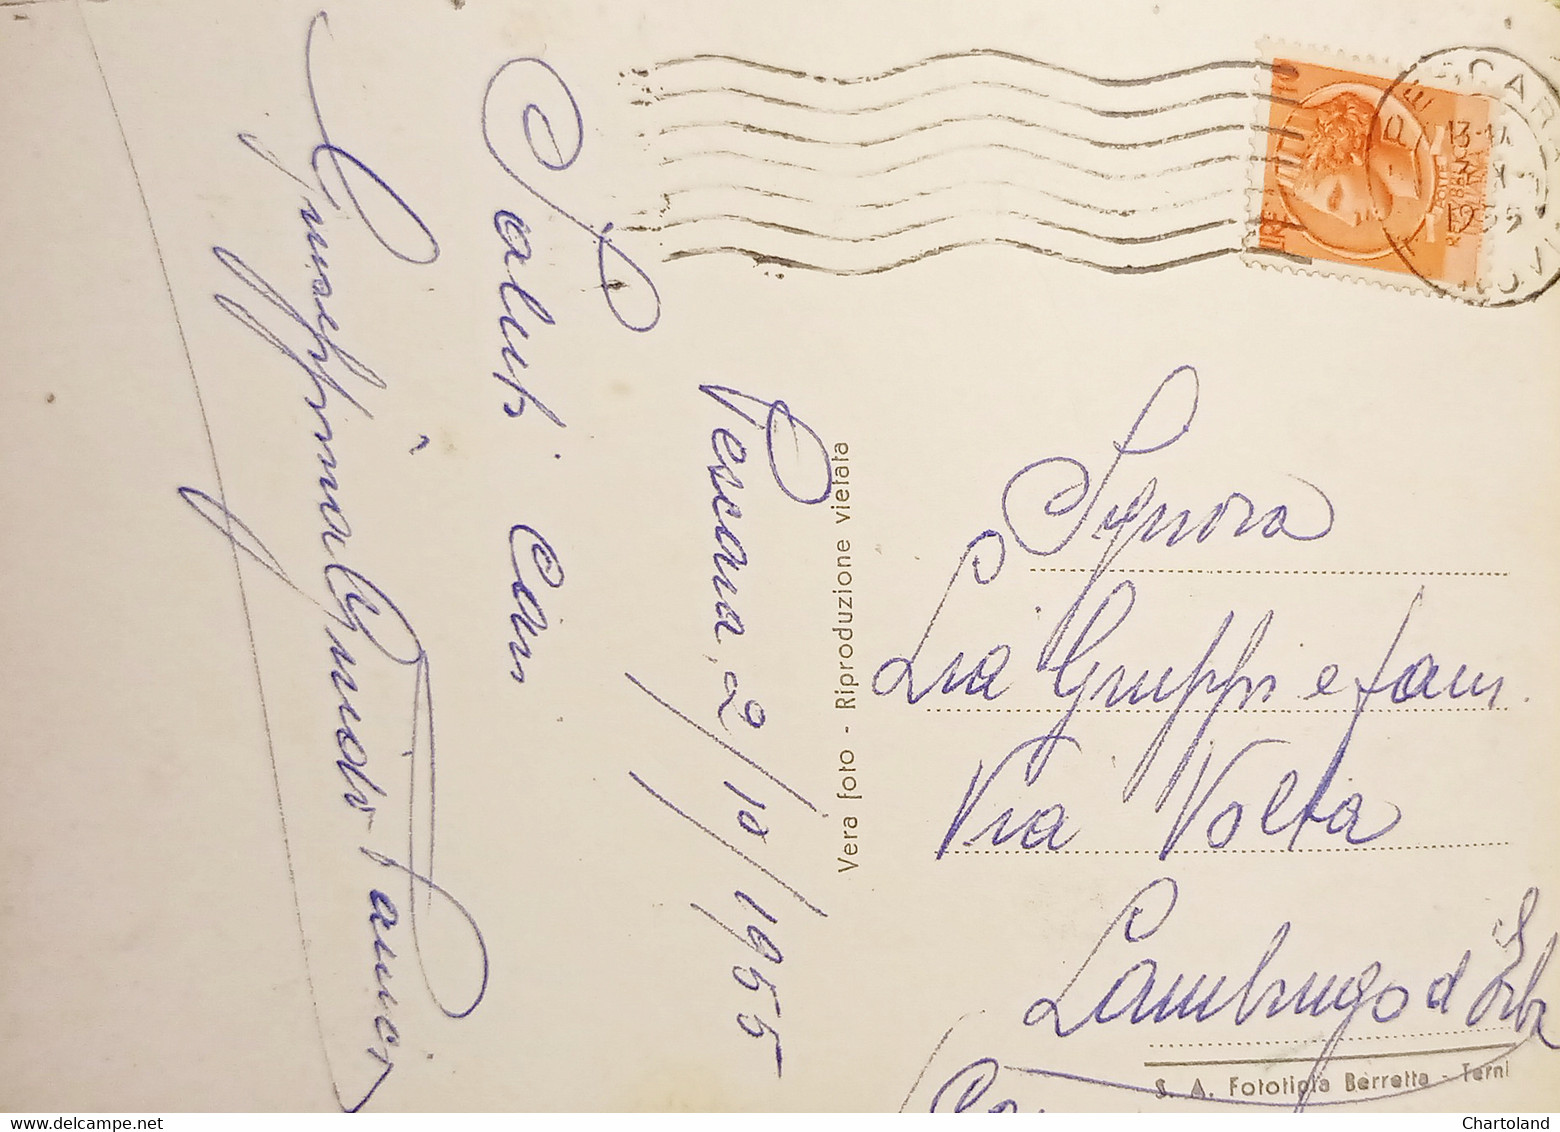 Pescara, 2/10/1955
Saluti cari
Giuseppina
Vera foto - Riproduzione vietata
LIRE 10
POSTE
REPUBBLICA
ITALIANA
PESCARA
13-14
1955
Signora
Lia Gruppi e fam.
Via Volta
Lambrugo d'Erba
S. A. Fototipia Berretta - Terni
Chartoland